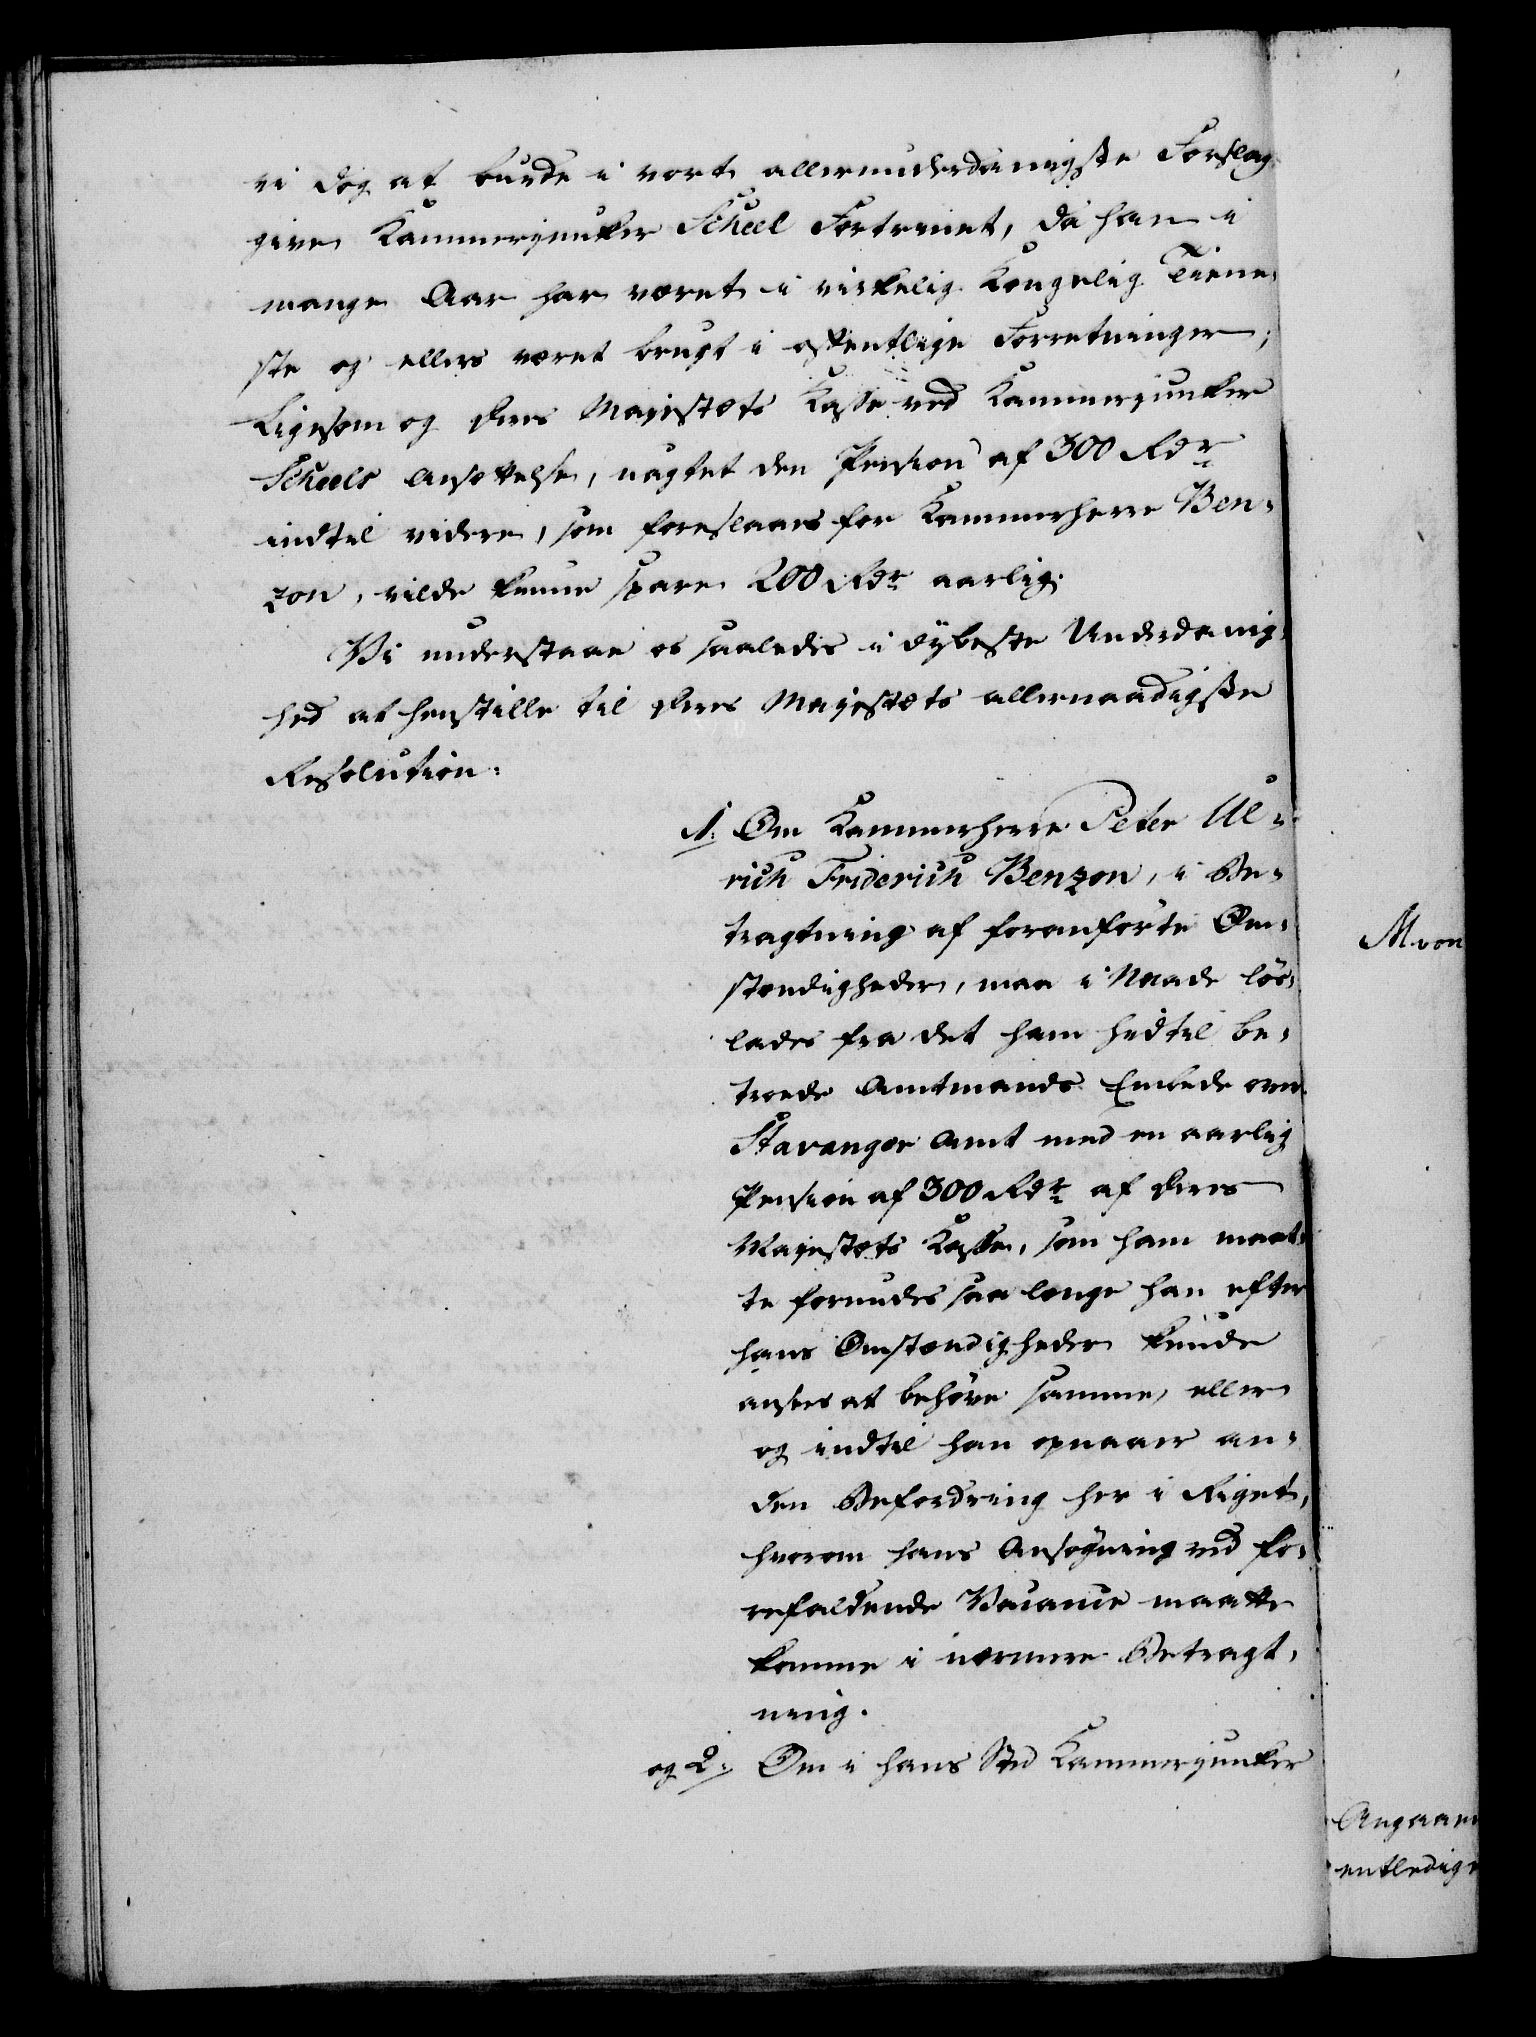 vi dog at burde i vort allerunderdanigste Forslag
give Kammerjunker Scheel Fortrinet, da han i
mange Aar har været i virkelig Kongelig Tiene-
ste og ellers været brugt i offentlige Forretninger;
Ligesom og Deres Majestæts Kasse ved Kammerjunker
Scheels Ansættelse, uagtet den Pension af 300 Rdr
indtil videre, som foreslaaes for Kammerherre Ben-
zon, vilde kunne spare 200 Rdr aarlig.
Vi understaae os saaledes i dybeste Underdanig-
hed at henstille til Deres Majestæts allernaadigste
Resolution:
1. Om Kammerherre Peter Ul-
rich Friderich Benzon, i Be-
tragtning af foranførte Om-
stændigheder, maa i Naade løs-
lades fra det ham hidtil be-
troede Amtmands Embede over
Stavanger Amt med en aarlig
Pension af 300 Rdr af Deres
Majestæts Kasse, som ham maat-
te forundes saa længe han efter
hans Omstændigheder kunde
ansees at behøve samme, eller
og indtil han opnaaer an-
den Befordring her i Riget,
hvorom hans Ansøgning ved fo-
refaldende Vacance maatte
komme i nærmere Betragt-
ning.
og 2. Om i hans Sted Kammerjunker
Angaaen
entledige